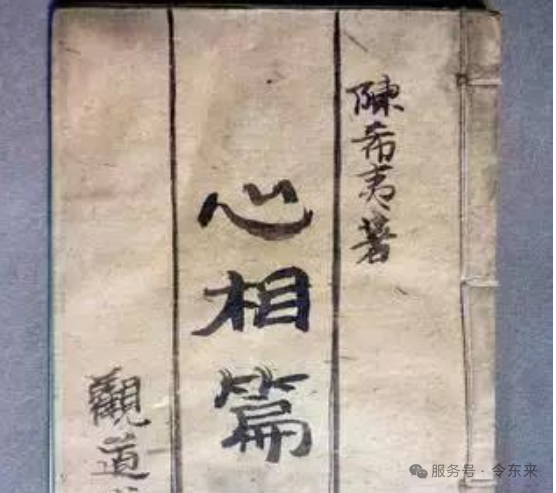 陳希夷著
心相篇
觀道
服务号·令东来